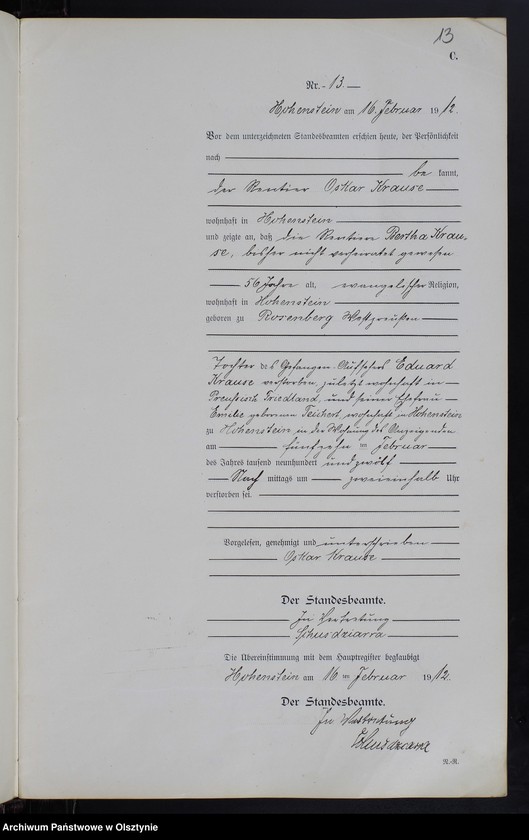 13
C.
Nr. 13.
Hohenstein am 16. Februar 1912.
Vor dem unterzeichneten Standesbeamten erschien heute, der Persönlichkeit
nach
be kannt,
der Rentier Oskar Krause
wohnhaft in Hohenstein
und zeigte an, daß die Rentiere Bertha Krau-
se, bisher nicht verheiratet gewesen
56 Jahre alt, evangelischer Religion,
wohnhaft in Hohenstein
geboren zu Rosenberg Westpreußen
Tochter des Gefangen-Aufsehers Eduard
Krause verstorben, zuletzt wohnhaft in
Preußisch Friedland, und seiner Ehefrau
Emilie geborenen Teichert, wohnhaft in Hohenstein
zu Hohenstein in der Wohnung des Anzeigenden
am fünfzehn ten Februar
des Jahres tausend neunhundert und zwölf
Nach mittags um zweieinhalb Uhr
verstorben sei.
Vorgelesen, genehmigt und unterschrieben
Oskar Krause
Der Standesbeamte.
In Vertretung
Schusdziarra
Die Übereinstimmung mit dem Hauptregister beglaubigt
Hohenstein am 16 ten Februar 1912.
Der Standesbeamte.
In Vertretung
Schusdziarra
N.-R.
Archiwum Państwowe w Olsztynie